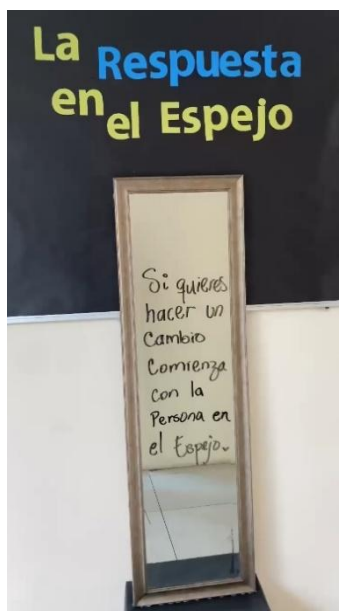 La Respuesta
en el Espejo
Si quieres
hacer un
Cambio
Comienza
Con la
Persona en
el Espejo.